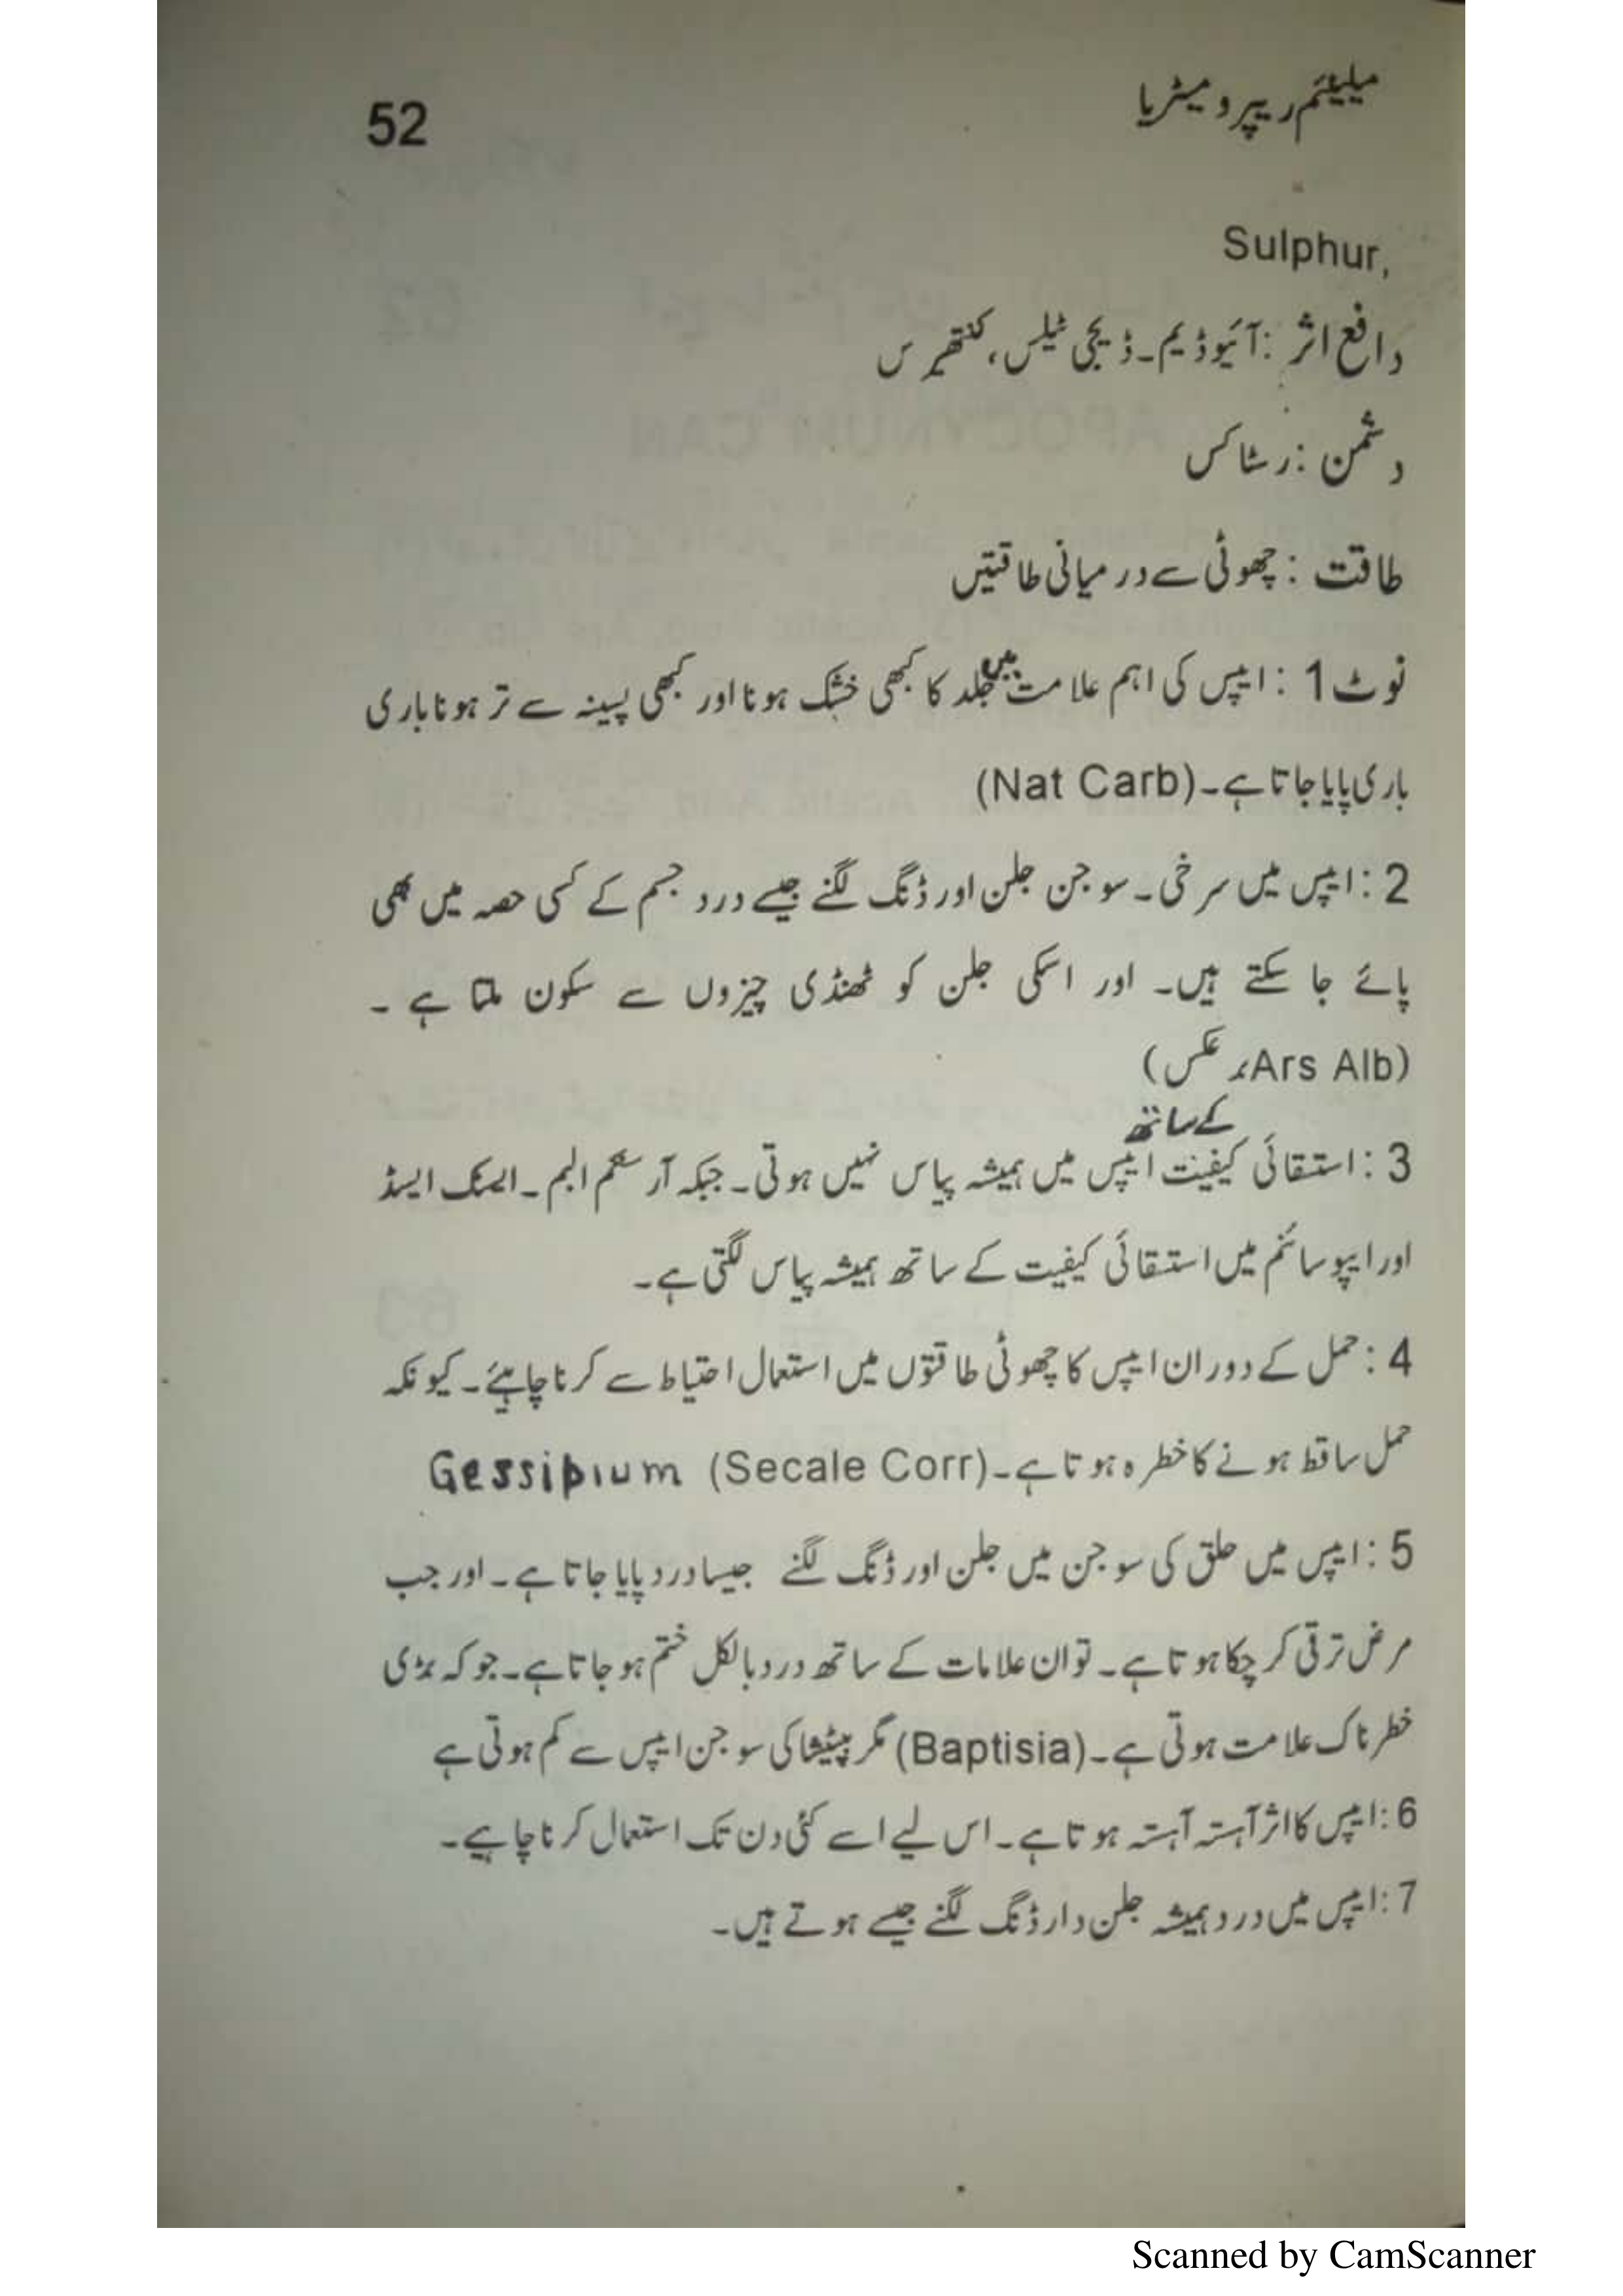 میلینئم ریپرومیٹریا
52
Sulphur,
دافع اثر : آئیوڈیم۔ ڈیجی ٹیلس، کنتھرس
دشمن : رسٹاکس
طاقت : چھوٹی سے درمیانی طاقتیں
نوٹ 1 : ایپس کی اہم علامت میں جلد کا کبھی خشک ہونا اور کبھی پسینہ سے تر ہونا باری
باری پایا جاتا ہے۔ (Nat Carb)
2 : ایپس میں سرخی۔ سوجن جلن اور ڈنگ لگنے جیسے درد جسم کے کسی حصہ میں بھی
پائے جا سکتے ہیں۔ اور اسکی جلن کو ٹھنڈی چیزوں سے سکون ملتا ہے ۔
(Ars Alb برعکس)
کے ساتھ
3 : استقائی کیفینت ایپس میں ہمیشہ پیاس نہیں ہوتی۔ جبکہ آرسنکم البم۔ ایسٹک ایسڈ
اور ایپوسائنم میں استقائی کیفیت کے ساتھ ہمیشہ پیاس لگتی ہے۔
4 : حمل کے دوران ایپس کا چھوٹی طاقتوں میں استعمال احتیاط سے کرنا چاہیئے۔ کیونکہ
حمل ساقط ہونے کا خطرہ ہوتا ہے۔ (Secale Corr) Gessipium
5 : ایپس میں حلق کی سوجن میں جلن اور ڈنگ لگنے جیسا درد پایا جاتا ہے۔ اور جب
مرض ترقی کر چکا ہوتا ہے۔ تو ان علامات کے ساتھ درد بالکل ختم ہو جاتا ہے۔ جو کہ بڑی
خطرناک علامت ہوتی ہے۔ (Baptisia) مگر بپٹیشا کی سوجن ایپس سے کم ہوتی ہے
6 : ایپس کا اثر آہستہ آہستہ ہوتا ہے۔ اس لیے اسے کئی دن تک استعمال کرنا چاہیے۔
7 : ایپس میں درد ہمیشہ جلن دار ڈنگ لگنے جیسے ہوتے ہیں۔
Scanned by CamScanner